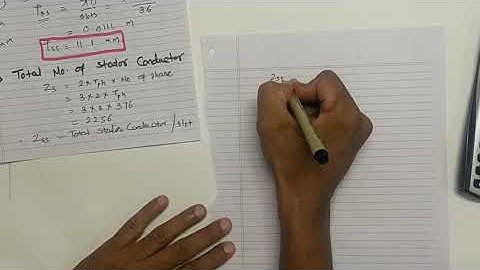 = πD
slots
36
= 0.0111 m
= 11.1 mm
→ Total No: of stator Conductor
Zs = 2 × Tph × No of phase
= 3 × 2 × Tph
= 3 × 2 × 376
= 2256
Zss = Total stator Conductor / slot
Zss